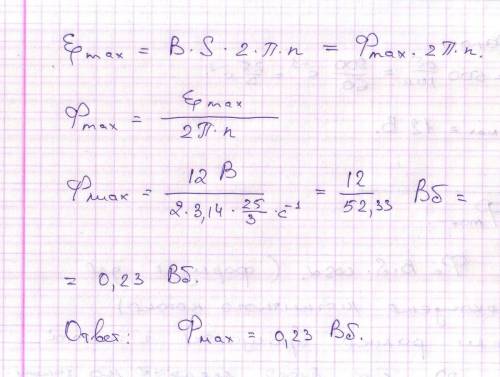 Ɛᵢ max = B · S · 2 · π · n = Φmax · 2π · n.
Φmax = Ɛᵢ max / 2π · n
Φмах = 12 В / 2 · 3,14 · 25/3 · c⁻¹ = 12 / 52,33 Вб =
= 0,23 Вб.
Ответ: Φмах = 0,23 Вб.